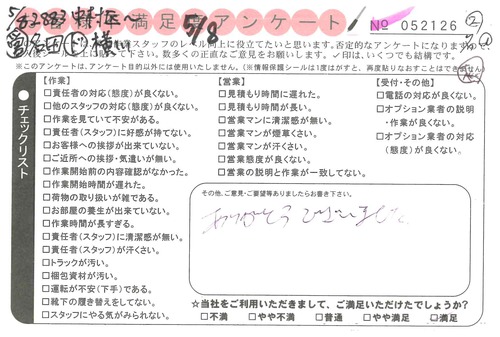 満足 アンケート
№ 052126
5/8
スタッフのレベル向上に役立てたいと思います。否定的なアンケートになりますので、
お願いします。✓印は、いくつでも結構です。
※このアンケートは、アンケート目的以外には使用いたしません。(※情報保護シールは1度はがすと、再度貼りなおすことはできません)
チェックリスト
【作業】
□責任者の対応(態度)が良くない。
□他のスタッフの対応(態度)が良くない。
□作業を見ていて不安がある。
□責任者(スタッフ)に好感が持てない。
□お客様への挨拶が出来ていない。
□ご近所への挨拶・気遣いが無い。
□作業開始前の内容確認がなかった。
□作業開始時間が遅れた。
□荷物の取り扱いが雑である。
□お部屋の養生が出来ていない。
□作業時間が長すぎる。
□責任者(スタッフ)に清潔感が無い。
□責任者(スタッフ)が汗くさい。
□トラックが汚い。
□梱包資材が汚い。
□運転が不安(下手)である。
□靴下の履き替えをしてない。
□スタッフにやる気がみられない。
【営業】
□見積もり時間に遅れた。
□見積もり時間が長い。
□営業マンに清潔感が無い。
□営業マンが煙草くさい。
□営業マンが汗くさい。
□営業態度が良くない。
□営業の説明と作業が一致してない。
【受付・その他】
□電話の対応が良くない。
□オプション業者の説明
・作業が良くない。
□オプション業者の対応
(態度)が良くない。
その他、ご意見・ご要望等ありましたらお書き下さい。
ありがとうございました
☆当社をご利用いただきまして、ご満足いただけたでしょうか?
□不満 □やや不満 □普通 □やや満足 □満足